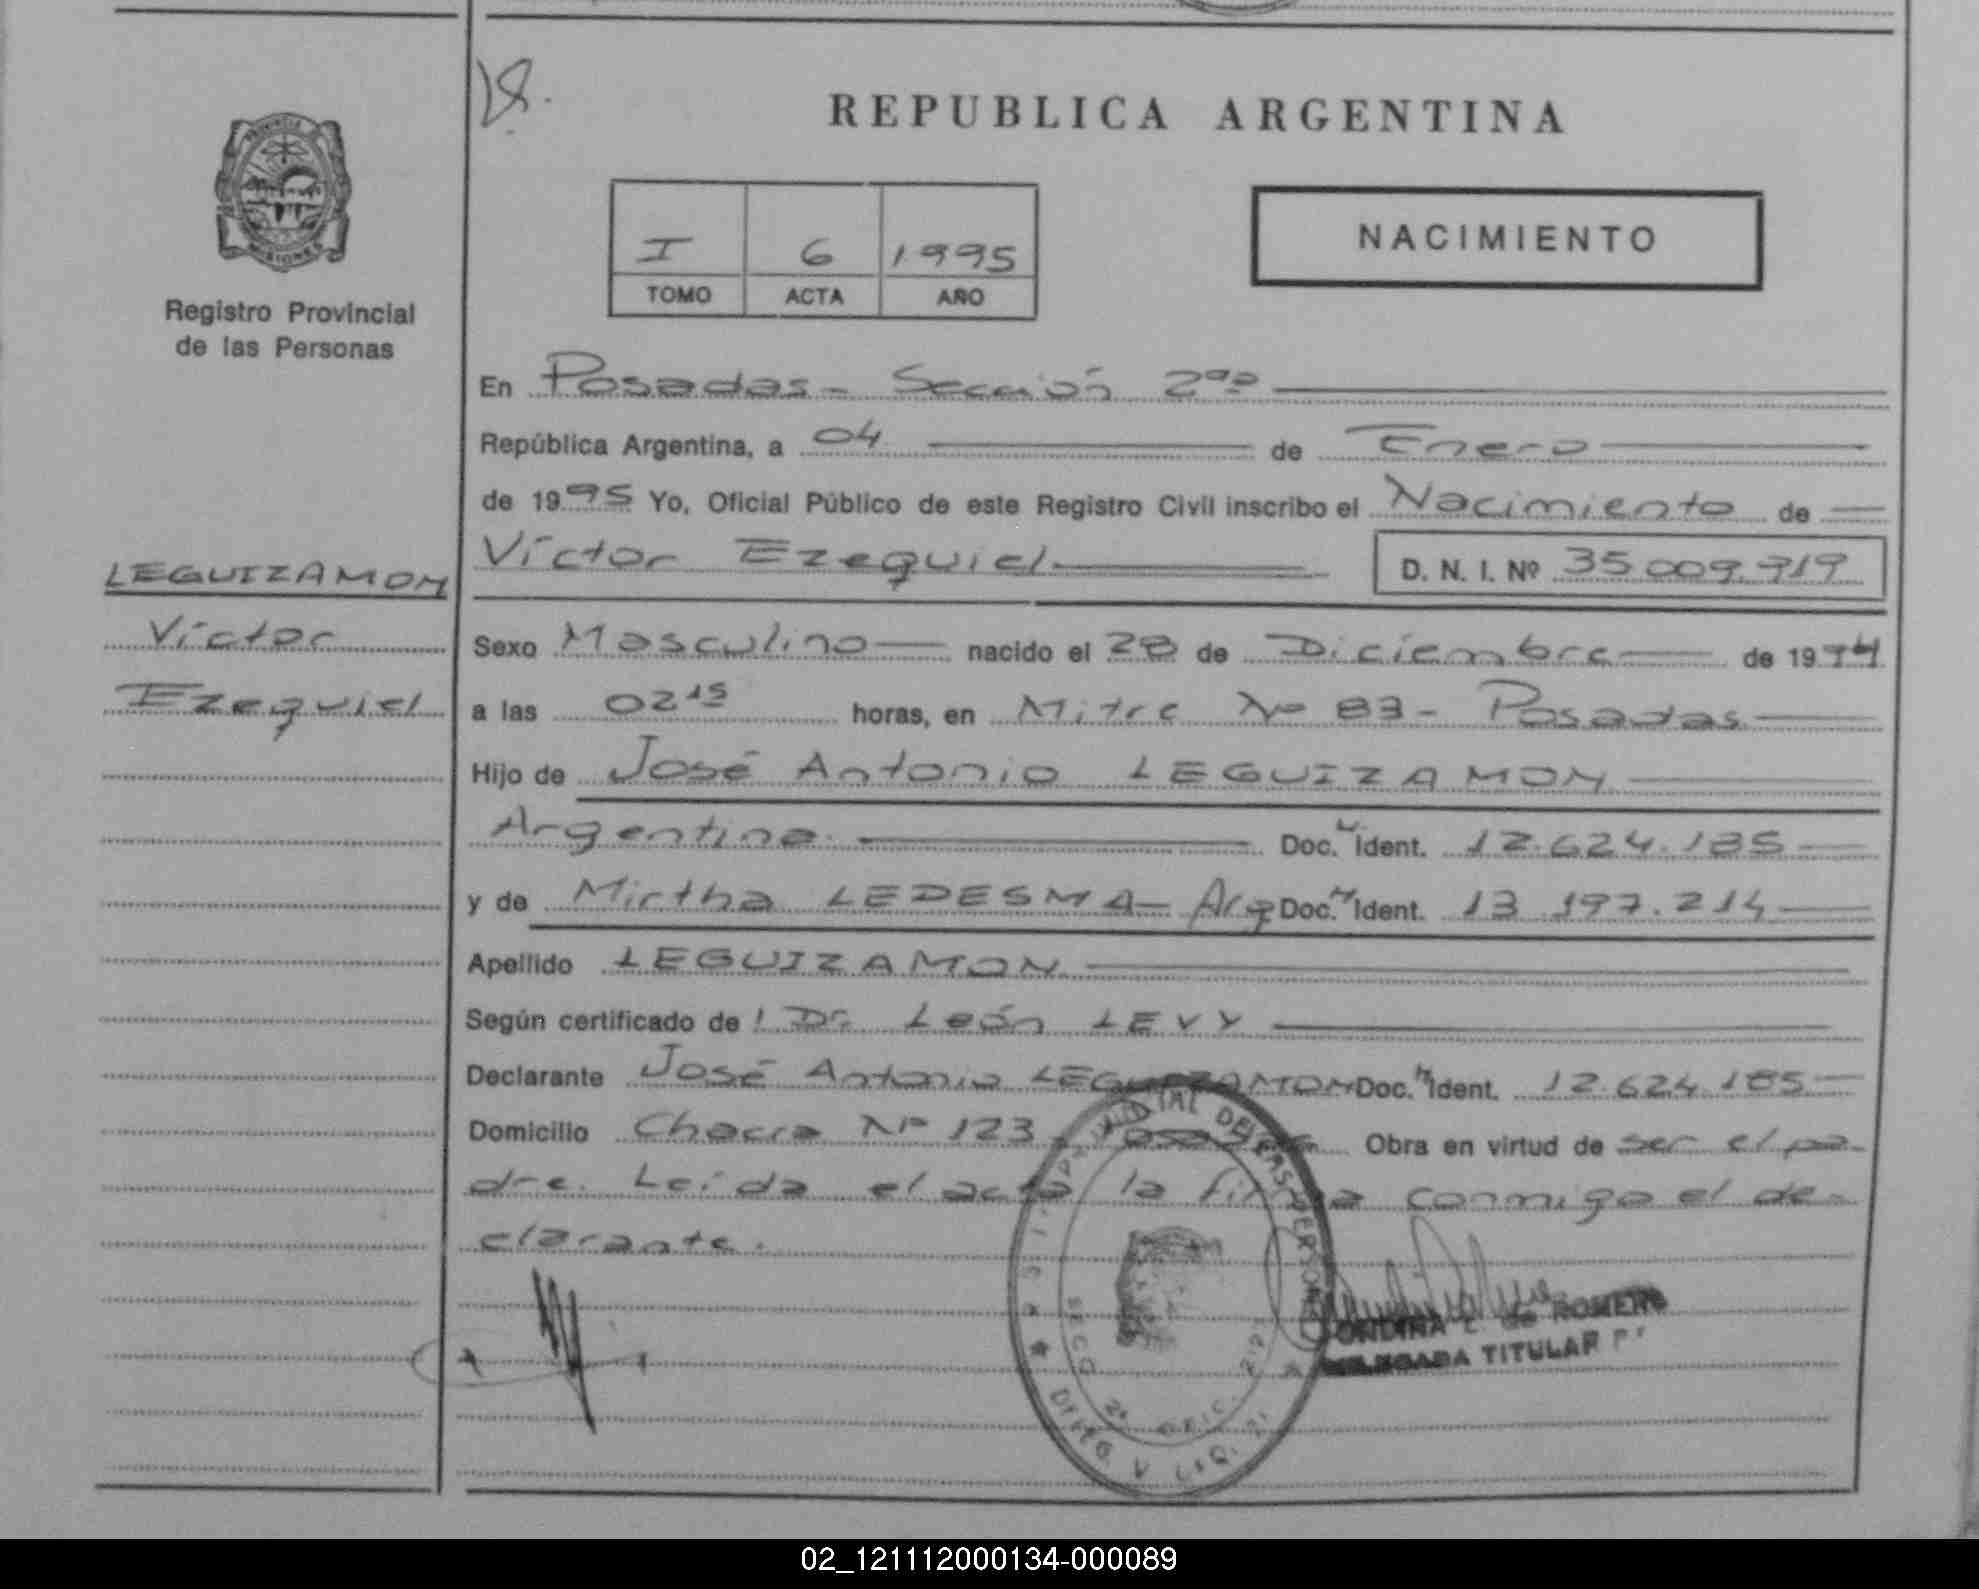 REPUBLICA ARGENTINA
I 6 1995
TOMO ACTA AÑO
NACIMIENTO
Registro Provincial
de las Personas
LEGUIZAMON
Víctor
Ezequiel
En Posadas - Sección 2da
República Argentina, a 04 de Enero
de 1995 Yo, Oficial Público de este Registro Civil inscribo el Nacimiento de
Víctor Ezequiel D. N. I. Nº 35.009.719
Sexo Masculino nacido el 28 de Diciembre de 1994
a las 02 15 horas, en Mitre Nº 83 - Posadas
Hijo de José Antonio LEGUIZAMON
Argentina Doc. Ident. 12.624.185
y de Mirtha LEDESMA - Arg Doc. Ident. 13 197.214
Apellido LEGUIZAMON
Según certificado de Dr. León LEVY
Declarante José Antonio LEGUIZAMON Doc. Ident. 12.624.185
Domicilio Chacra Nº 123 - Posadas Obra en virtud de ser el pa-
dre. Leída el acta la firma conmigo el de-
clarante.
ONDINA E. de ROMERO
DELEGADA TITULAR
02_121112000134-000089